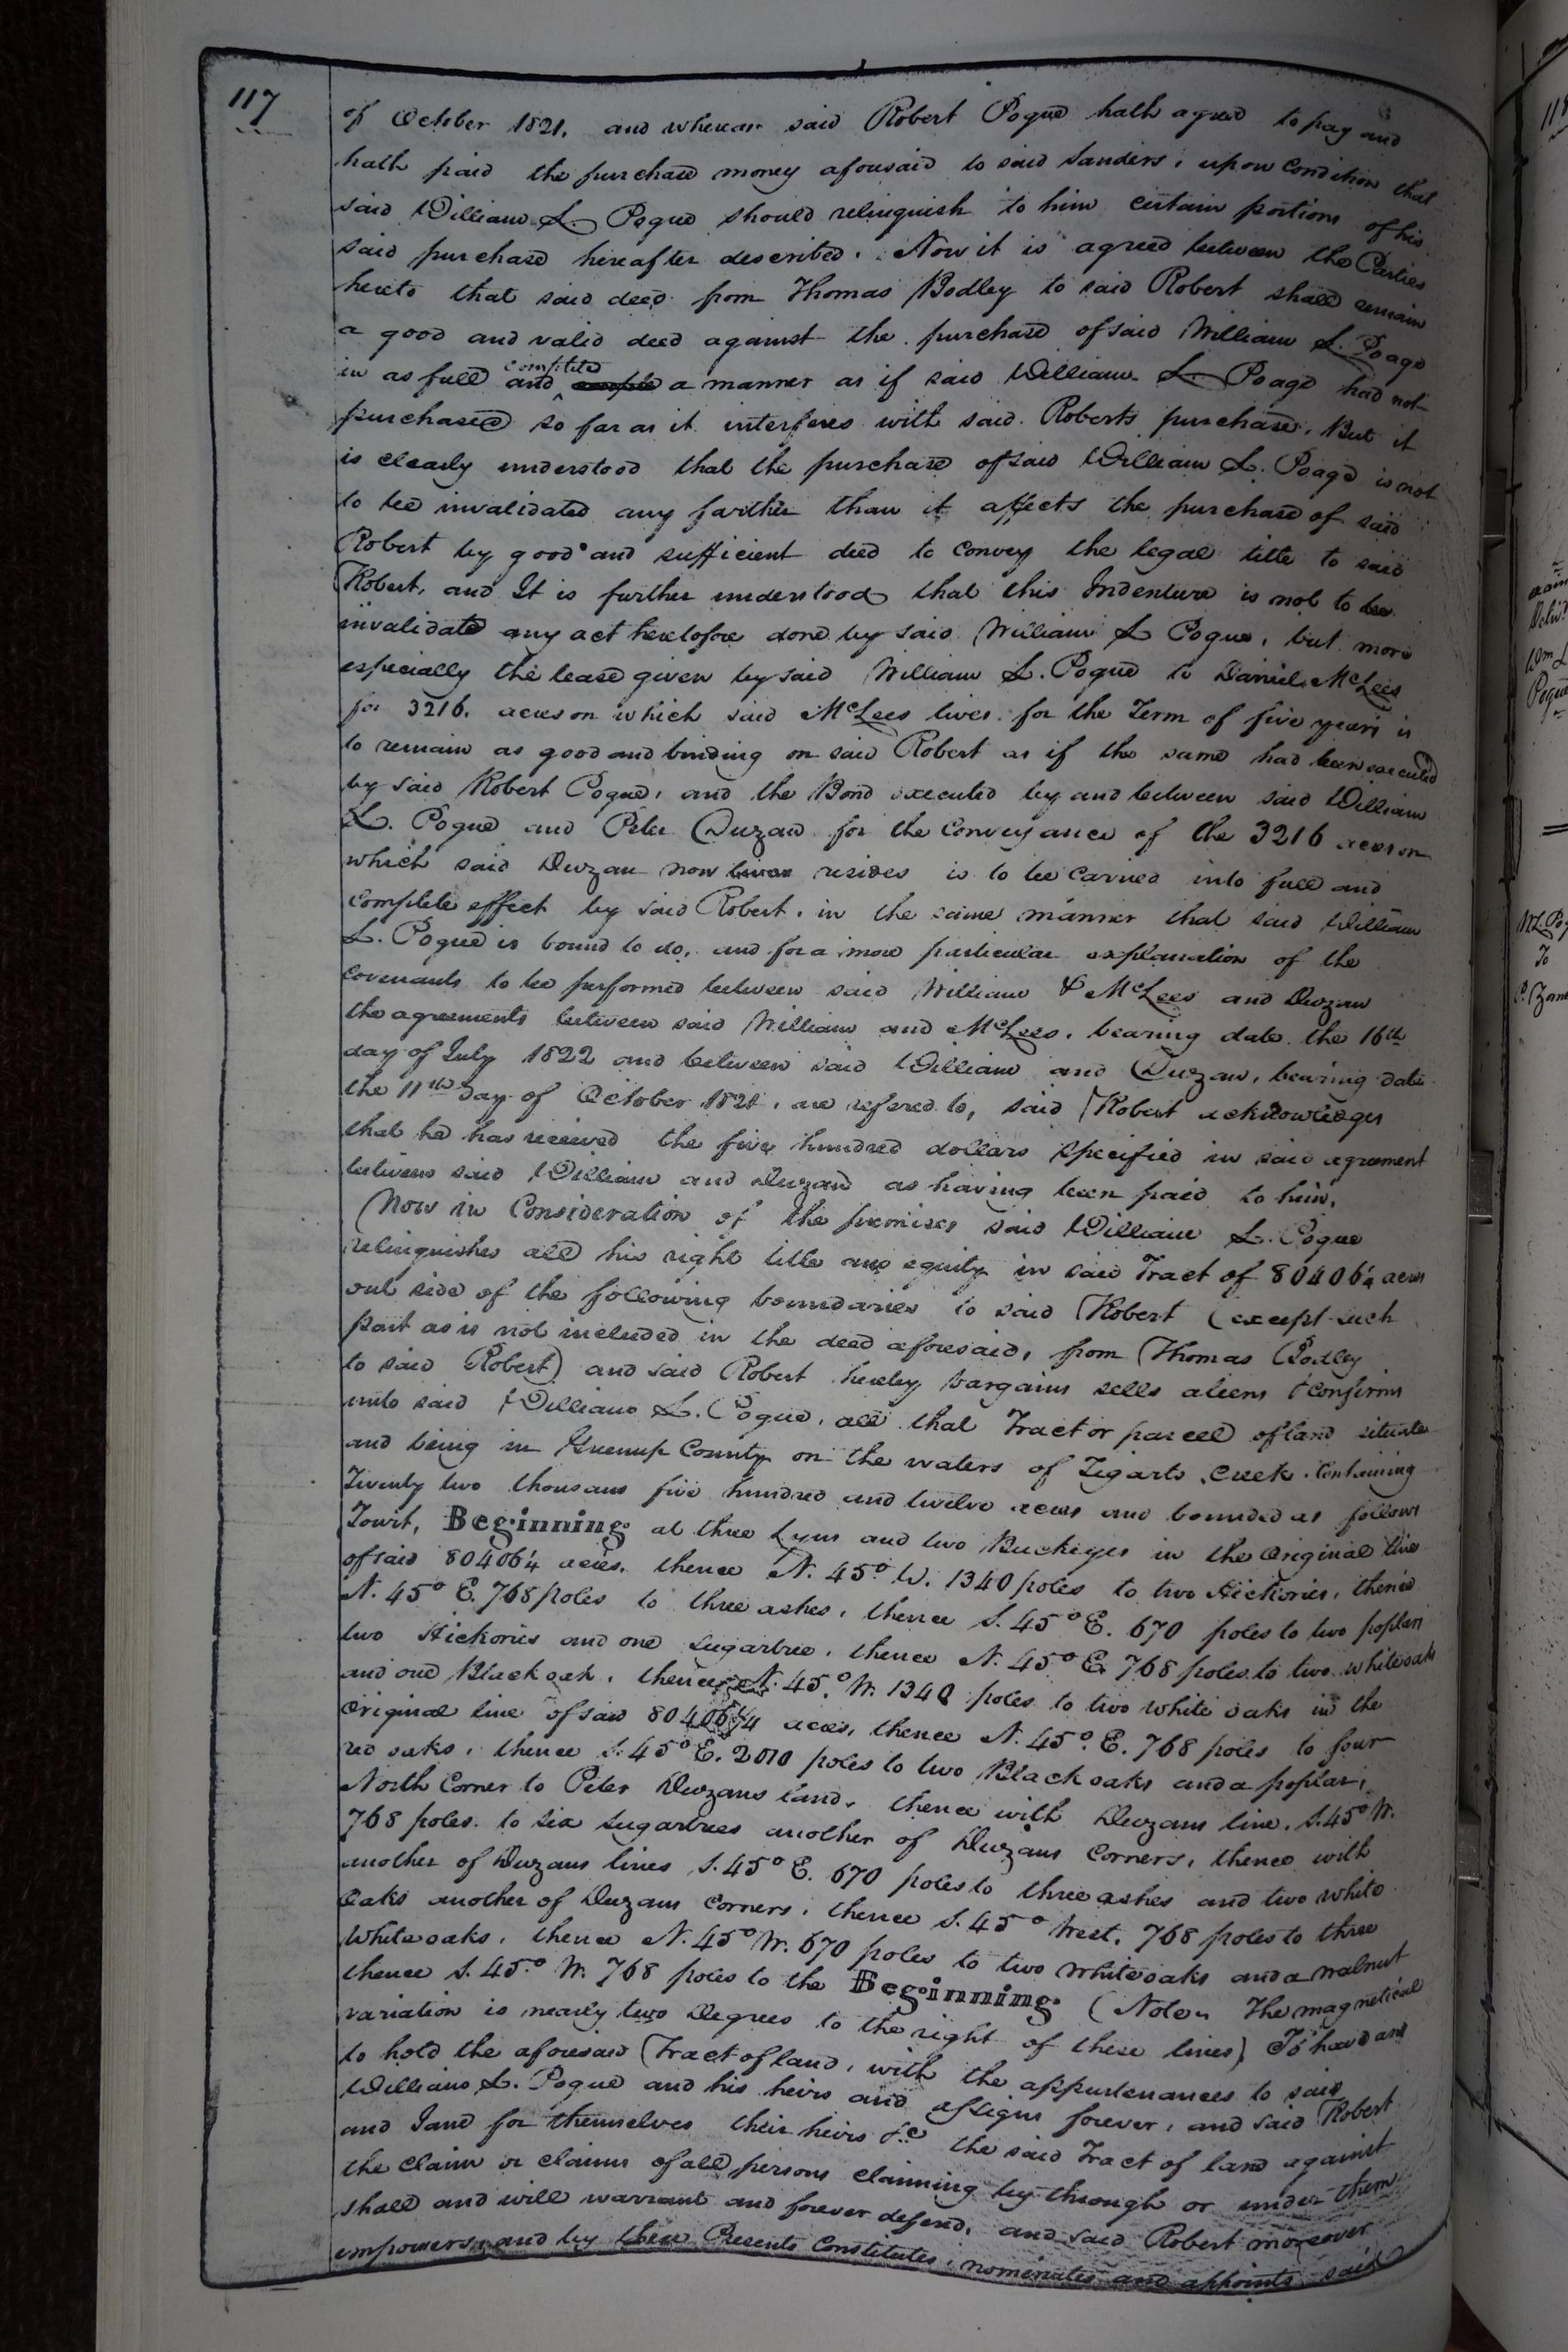 117
of October 1821. and whereas said Robert Pogue hath agreed to pay and
hath paid the purchase money aforesaid to said Sanders, upon condition that
said William L. Pogue should relinquish to him certain portions of his
said purchase hereafter described. Now it is agreed between the Parties
hereto that said deed from Thomas Bodley to said Robert shall remain
a good and valid deed against the purchase of said William L. Poage
in as full and completed a manner as if said William L. Poage had not
purchased so far as it interferes with said Roberts purchase. But it
is clearly understood that the purchase of said William L. Poage is not
to be invalidated any farther than it affects the purchase of said
Robert by good and sufficient deed to convey the legal title to said
Robert, and It is further understood that this Indenture is not to
invalidate any act heretofore done by said William L Pogue, but more
especially the lease given by said William L. Pogue to Daniel McLees
for 3216. acres on which said McLees lives for the Term of five years is
to remain as good and binding on said Robert as if the same had been executed
by said Robert Pogue, and the Bond executed by and between said William
L. Pogue and Peter Duzan for the conveyance of the 3216 acres on
which said Duzan now resides is to be carried into full and
complete effect by said Robert. in the same manner that said William
L. Pogue is bound to do, and for a more particular explanation of the
covenants to be performed between said William & McLees and Duzan
the agreements between said William and McLees, bearing date the 16th
day of July 1822 and between said William and Duzan, bearing date
the 11th day of October 1821, are refered to, said Robert acknowledges
that he has received the five hundred dollars specified in said agreement
between said William and Duzan as having been paid to him.
Now in Consideration of the premises said William L. Pogue
relinquishes all his right title and equity in said Tract of 80406¼ acres
out side of the following boundaries to said Robert (except such
part as is not included in the deed aforesaid, from Thomas Bodley
to said Robert) and said Robert hereby bargains sells aliens & confirms
unto said William L. Pogue, all that Tract or parcel of land situate
and being in Greenup County on the waters of Tigarts Creek. Containing
Twenty two thousand five hundred and twelve acres and bounded as follows
Towit, Beginning at three Lynns and two Buckeyes in the Original line
of said 80406¼ acres. thence N. 45° W. 1340 poles to two Hickories, thence
N. 45° E. 768 poles to three ashes, thence S. 45° E. 670 poles to two poplars
two Hickories and one sugartree, thence N. 45° E. 768 poles to two white oaks
and one Black oak, thence N. 45° W. 1340 poles to two white oaks in the
Original line of said 80406¼ acres, thence N. 45° E. 768 poles to four
red oaks, thence S. 45° E. 2010 poles to two Black oaks and a poplar,
North Corner to Peter Duzans land, thence with Duzans line, S. 45° W.
768 poles to six sugartrees another of Duzans Corners, thence with
another of Duzans lines S. 45° E. 670 poles to three ashes and two white
Oaks another of Duzans Corners, thence S. 45° West, 768 poles to three
White oaks, thence N. 45° W. 670 poles to two white oaks and a walnut
thence S. 45° W. 768 poles to the Beginning (Note The magnetical
variation is nearly two Degrees to the right of these lines) To have and
to hold the aforesaid Tract of land, with the appurtenances to said
William L. Pogue and his heirs and assigns forever, and said Robert
and Jand for themselves their heirs &c the said Tract of land against
the Claim or claims of all persons claiming by through or under them
shall and will warrant and forever defend, and said Robert moreover
empowers, and by these Presents Constitutes, nominates and appoints said
118
Pogue
To